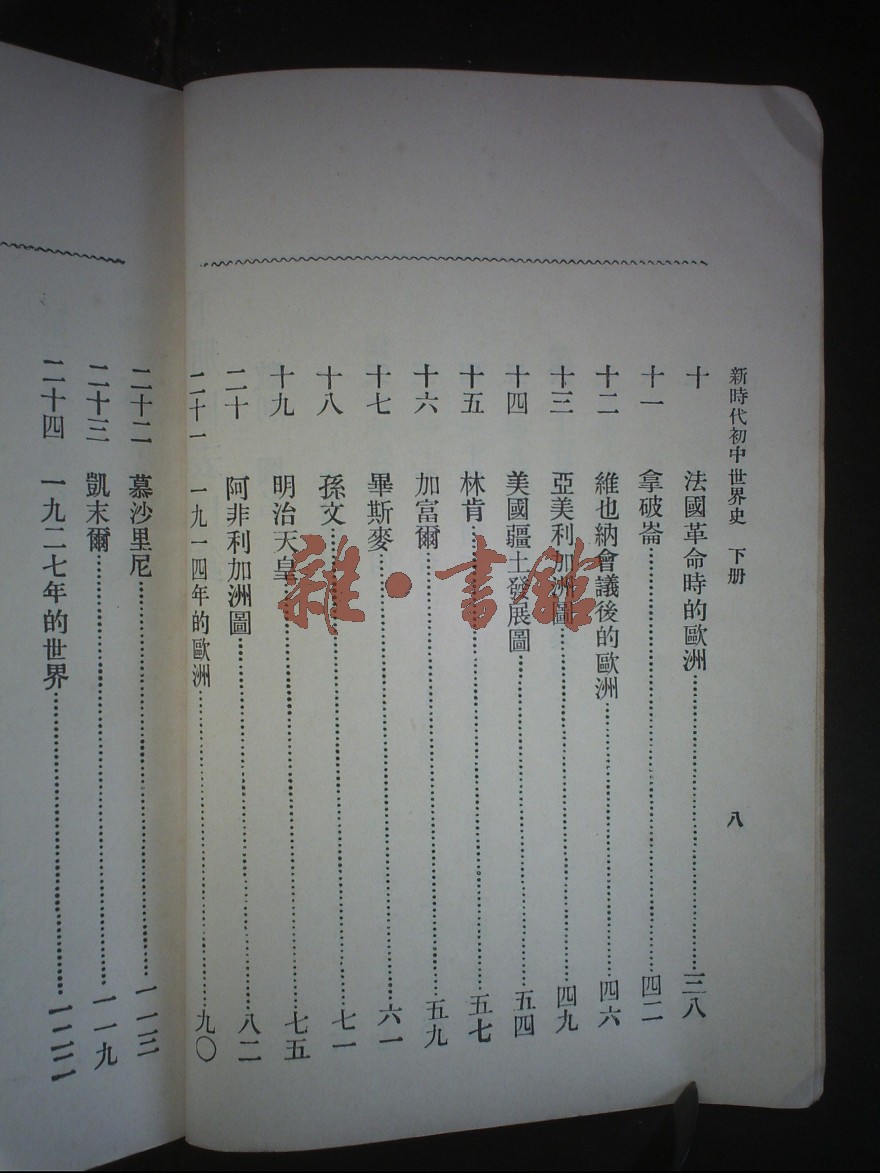 新時代初中世界史 下册 八
十 法國革命時的歐洲 三八
十一 拿破崙 四二
十二 維也納會議後的歐洲 四六
十三 亞美利加洲圖 四九
十四 美國疆土發展圖 五四
十五 林肯 五七
十六 加富爾 五九
十七 畢斯麥 六一
十八 孫文 七一
十九 明治天皇 七五
二十 阿非利加洲圖 八二
二十一 一九一四年的歐洲 九〇
二十二 慕沙里尼 一一三
二十三 凱末爾 一一九
二十四 一九二七年的世界 一二二
雜·書館